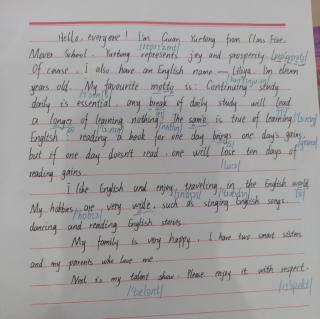 Hello, everyone! I'm Guan Yuetong from Class Five,
/reprɪ'zent/
School. Yuetong represents joy and prosperity.
Of course, I also have an English name — Liliya. I'm eleven
years old. My favourite motto is: Continuing study
daily is essential, any break of daily study will lead
a longer of learning nothing. The same is true of learning
English: reading a book for one day brings one day's gains,
but if one day doesn't read, one will lose ten days of
reading gains.
I like English and enjoy traveling in the English world.
My hobbies are very wide, such as singing English songs,
dancing and reading English stories.
My family is very happy. I have two smart sisters
and my parents who love me.
Next is my talent show. Please enjoy it with respect.
/'tælənt/